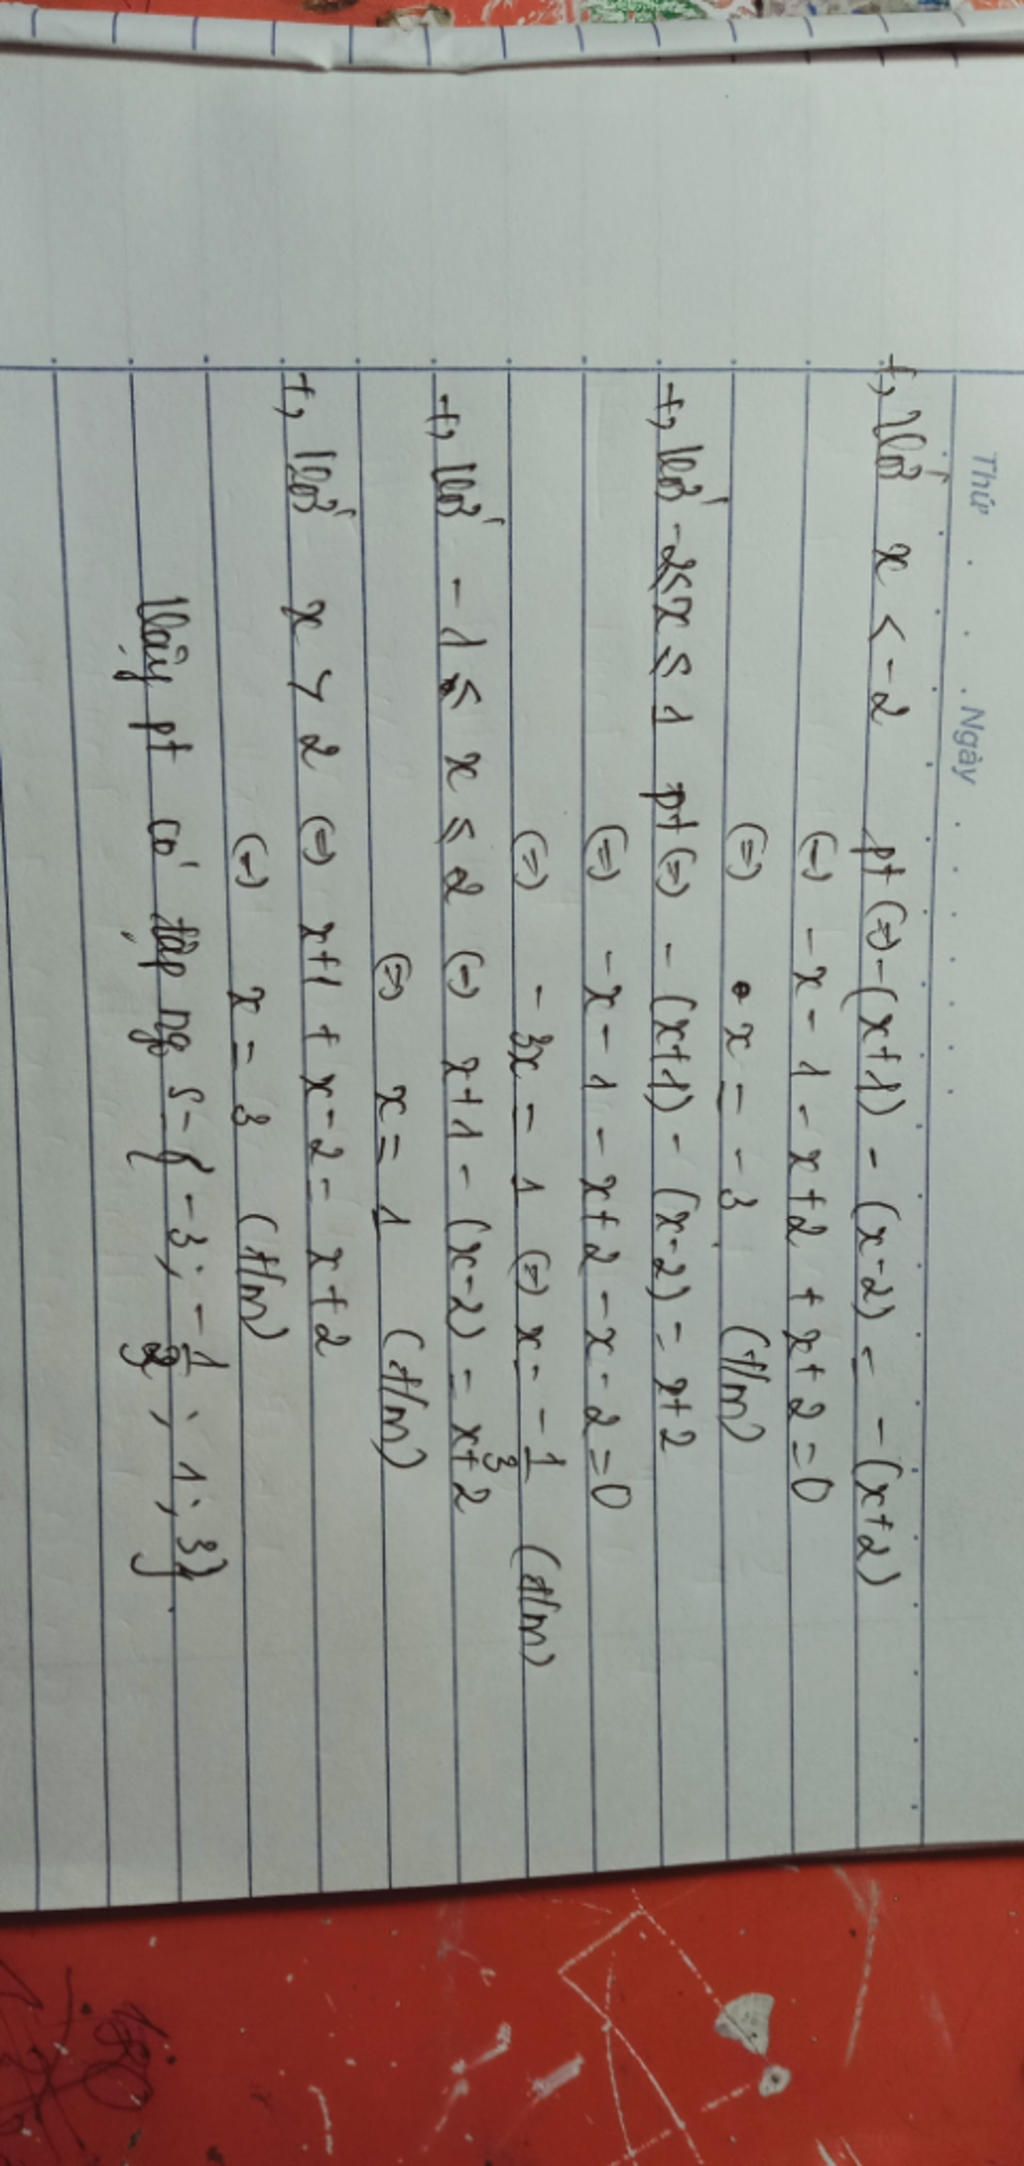 Thứ . . . Ngày . . . . .
+, Với x < -2 pt (=) -(x+1) - (x-2) = -(x+2)
(=) -x - 1 - x + 2 + x + 2 = 0
(=) x = -3 (t/m)
+, Với -2 ≤ x ≤ 1 pt (=) -(x+1) - (x-2) = x+2
(=) -x - 1 - x + 2 - x - 2 = 0
(=) -3x = 1 (=) x = -1/3 (t/m)
+, Với -1 ≤ x ≤ 2 (=) x+1 - (x-2) = x+2
(=) x = 1 (t/m)
+, Với x > 2 (=) x+1 + x-2 = x+2
(=) x = 3 (t/m)
Vậy pt có tập ng S = { -3; -1/3; 1; 3}.